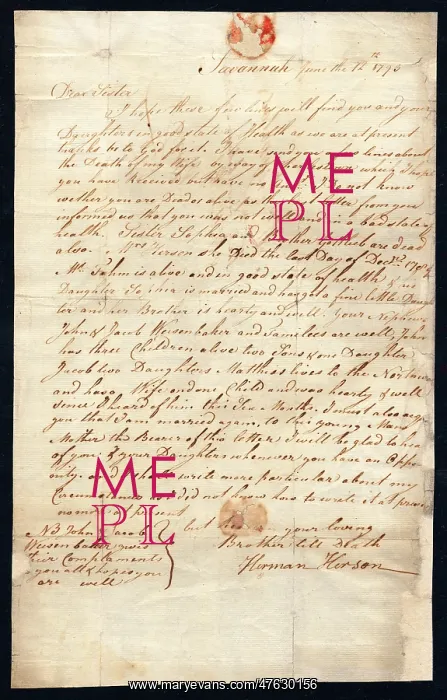 Savannah June the 12th 1793
Dear Sister
I hope these few lines will find you and your
Daughters in good state of Health as we are at present
thanks be to God for it. I have send you lines about
the Death of my Wife by way of which I hope
you have Received but have no not know
wether you are Dead or alive as the letter from you
informed us that you was not in a bad state of
health Sister Sophia and Brother are dead
also. she Died the last Day of Decr
Mr. is alive and in good state of health &
Daughter is married and has got a fine little Daugh
ter and her Brother is hearty and well. Your Nephews
John & Jacob Weisenbaker and Families are well, John
has three Children alive two Sons & one Daughter
Jacob two Daughters Matthias lives to the
and has a Wife and one Child and was hearty & well
sence I heard of him this Six Months. I must also
you that I am married again, to this young Mans
Mother the Bearer of this letter I will be glad to hear
of you & your Daughters whenever you have an Oppor
tunity. and write more particular about my
Circumstances did not know how to write it at
no more at present
NB John Jacob but your loving
Weisenbaker Brother till Death
their Complements Herman Herson
to you all & hopes you
are well
ME
PL
ME
PL
www.maryevans.com/47630156